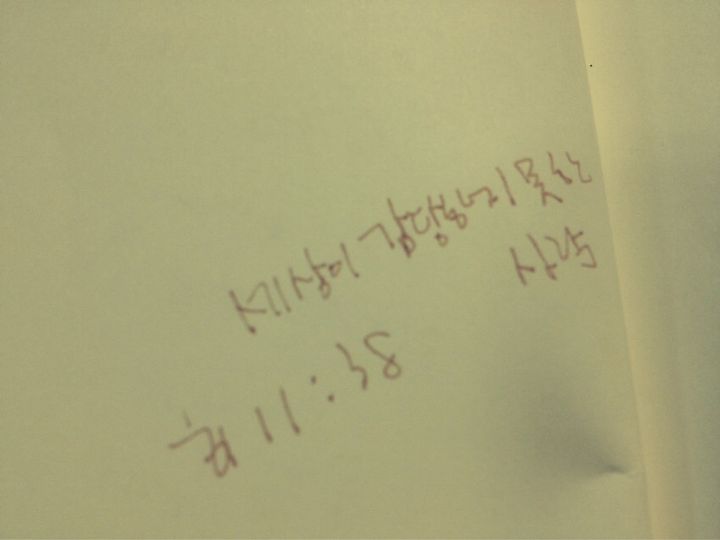 세상이 감당하지 못하는
사람
히 11:38